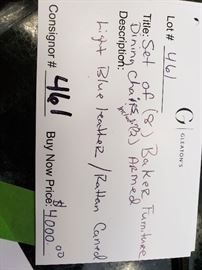 G | GLEATON'S
Lot # 461
Title: Set of (8) Baker Furniture
Dining chairs, (2) Armed
Description:
Light Blue Leather / Rattan Caned
Consignor # 461 Buy Now Price: $4,000.00